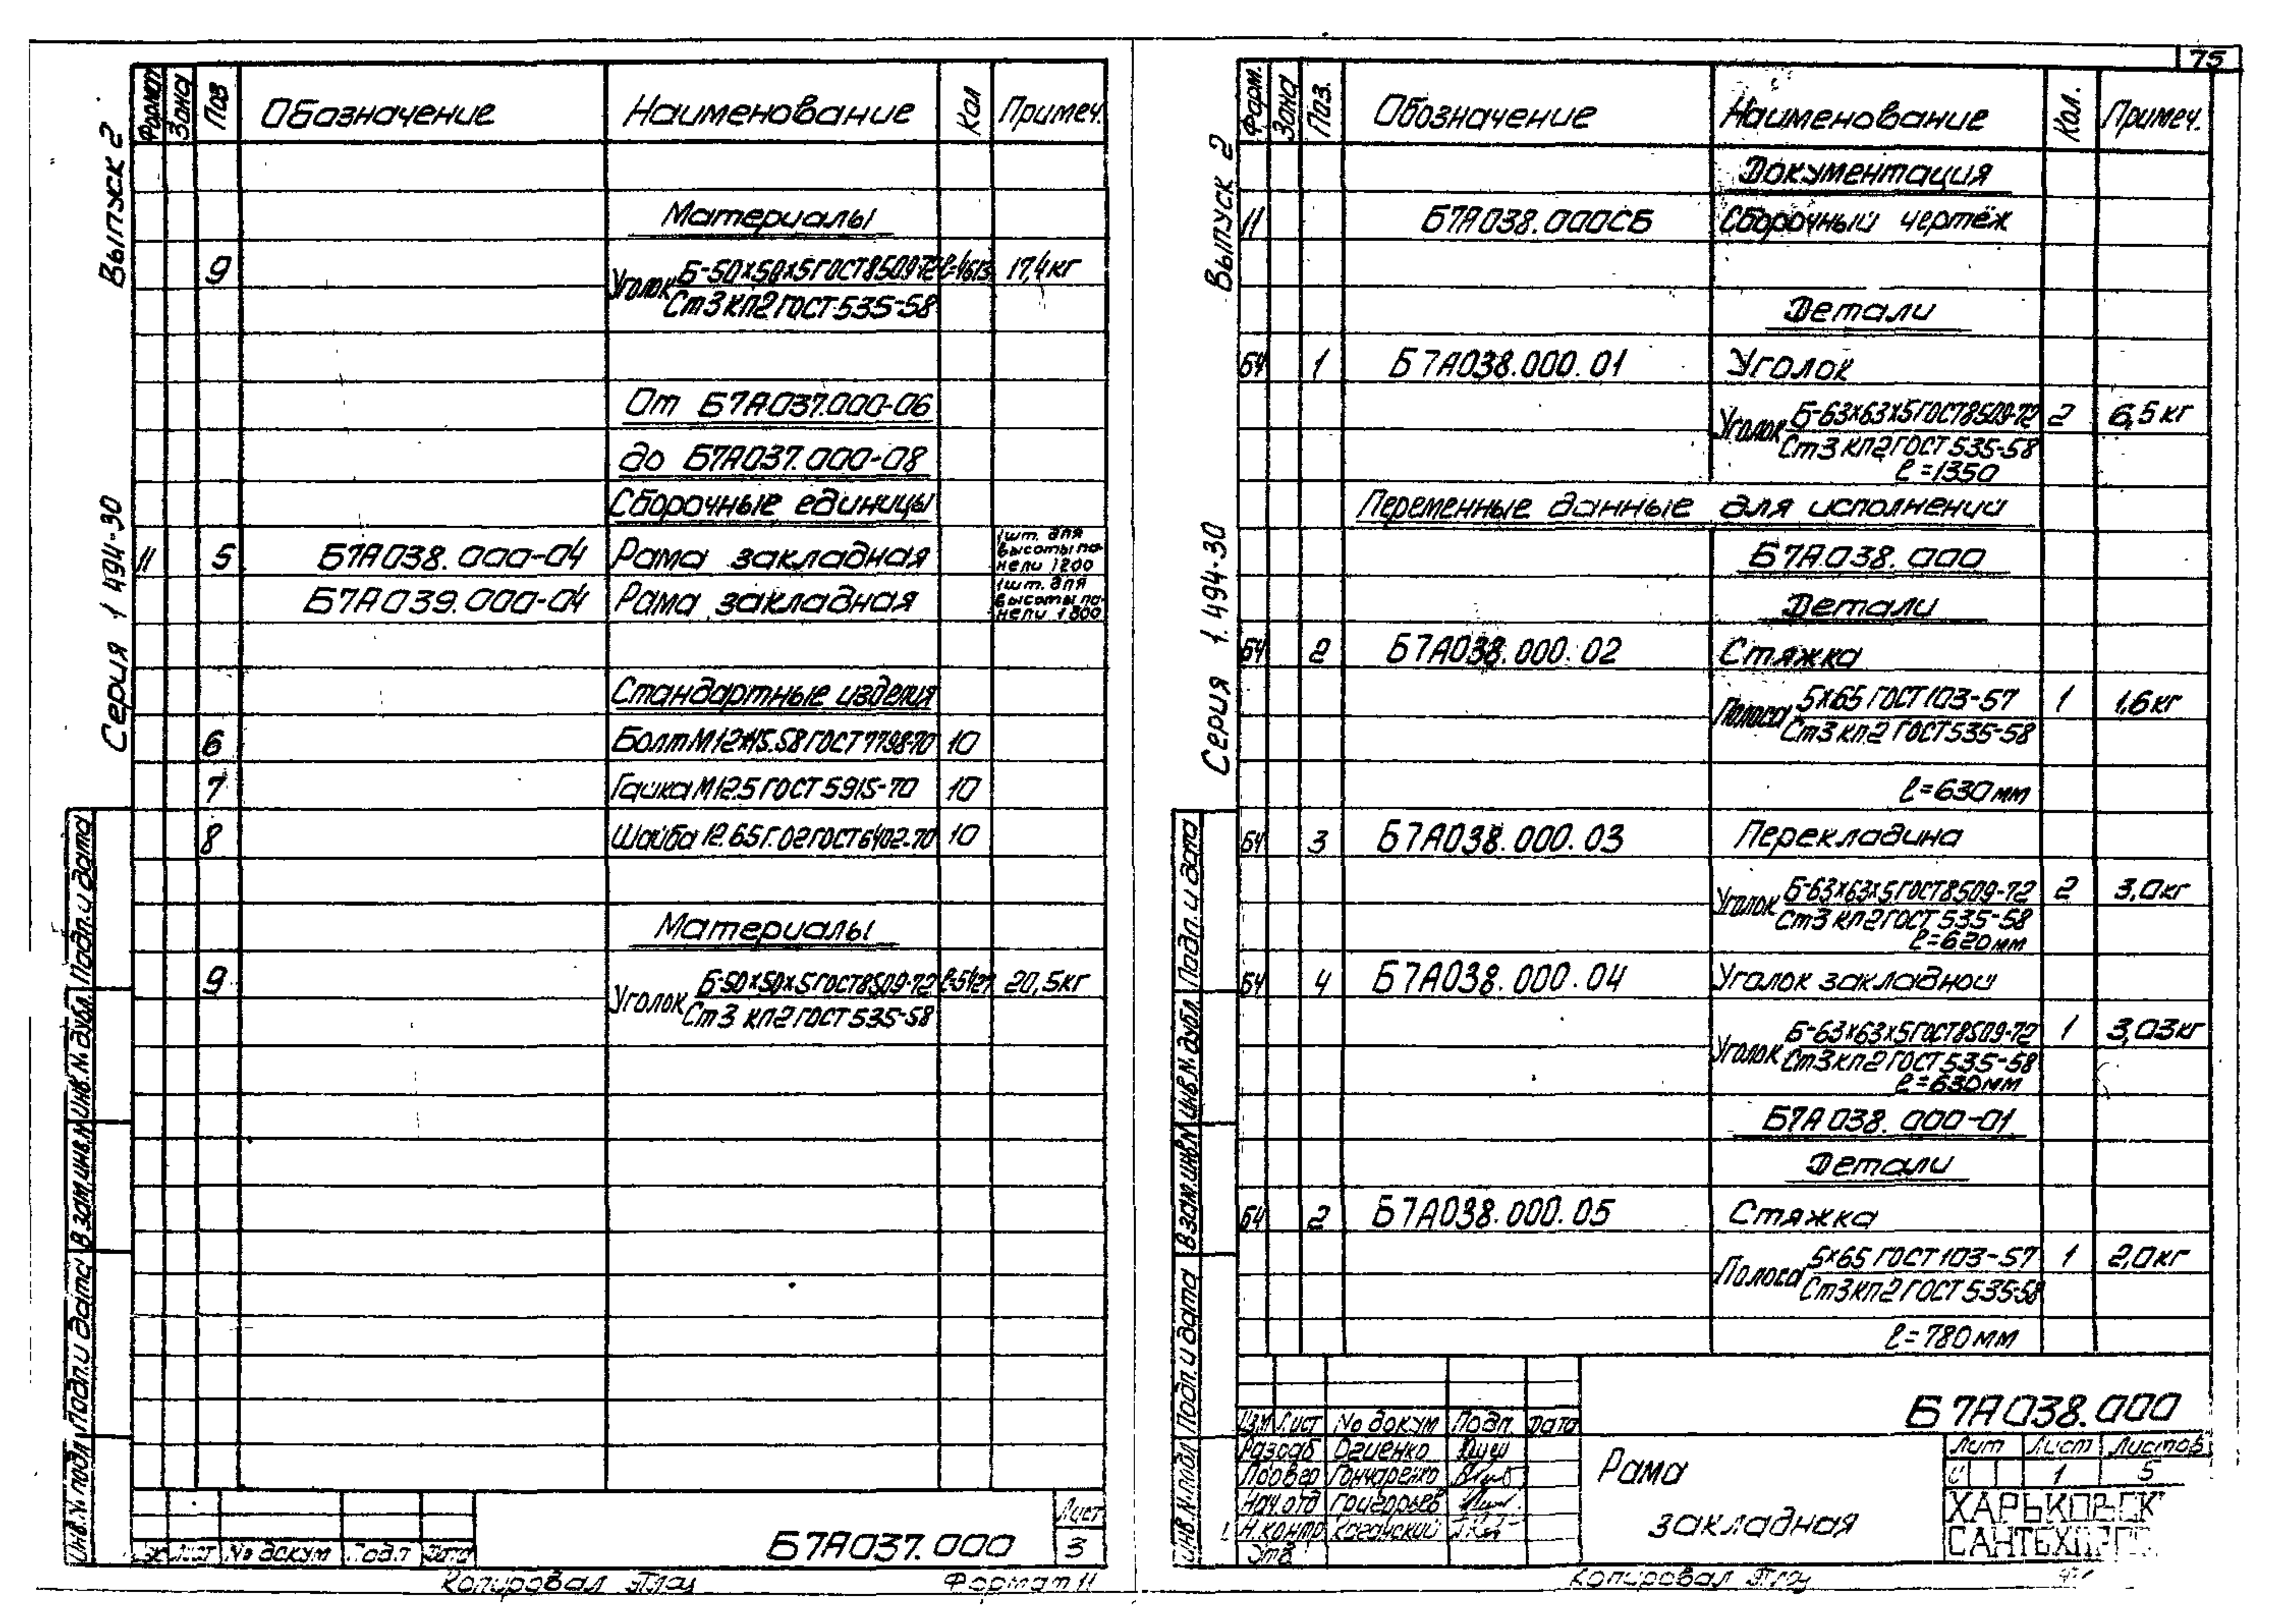 75
Выпуск 2
Серия 1.494-30
Формат Зона Поз Обозначение Наименование Кол Примеч.
Материалы
9 Уголок Б-50×50×5 ГОСТ 8509-72 ℓ=4613 17,4кг
Ст3кп2 ГОСТ 535-58
От Б7А037.000-06
до Б7А037.000-08
Сборочные единицы
11 5 Б7А038.000-04 Рама закладная 1шт. для высоты панели 1200
Б7А039.000-04 Рама закладная 1шт. для высоты панели 1800
Стандартные изделия
6 Болт М12×45.58 ГОСТ 7798-70 10
7 Гайка М12.5 ГОСТ 5915-70 10
8 Шайба 12.65Г.02 ГОСТ 6402-70 10
Материалы
9 Уголок Б-50×50×5 ГОСТ 8509-72 ℓ=5427 20,5кг
Ст3 кп2 ГОСТ 535-58
Инв.№ подл. Подп. и дата Взам.инв.№ Инв.№ дубл. Подп. и дата
Лист № докум Подп Дата
Б7А037.000
Лист
3
Копировал
Формат 11
Выпуск 2
Серия 1.494-30
Форм. Зона Поз. Обозначение Наименование Кол. Примеч.
Документация
11 Б7А038.000СБ Сборочный чертёж
Детали
БЧ 1 Б7А038.000.01 Уголок
Уголок Б-63×63×5 ГОСТ 8509-72 2 6,5кг
Ст3 кп2 ГОСТ 535-58
ℓ=1350
Переменные данные для исполнений
Б7А038.000
Детали
БЧ 2 Б7А038.000.02 Стяжка
Полоса 5×65 ГОСТ 103-57 1 1,6кг
Ст3 кп2 ГОСТ 535-58
ℓ=630мм
БЧ 3 Б7А038.000.03 Перекладина
Уголок Б-63×63×5 ГОСТ 8509-72 2 3,0кг
Ст3 кп2 ГОСТ 535-58
ℓ=620мм
БЧ 4 Б7А038.000.04 Уголок закладной
Уголок Б-63×63×5 ГОСТ 8509-72 1 3,03кг
Ст3кп2 ГОСТ 535-58
ℓ=630мм
Б7А038.000-01
Детали
БЧ 2 Б7А038.000.05 Стяжка
Полоса 5×65 ГОСТ 103-57 1 2,0кг
Ст3кп2 ГОСТ 535-58
ℓ=780мм
Инв.№ подл. Подп. и дата Взам.инв.№ Инв.№ дубл. Подп. и дата
Изм Лист № докум Подп. Дата
Разраб Огиенко
Провер Гончаренко
Нач.отд Григорьев
Н.контр Каганский
Утв
Б7А038.000
Рама
закладная
Лит Лист Листов
И 1 5
ХАРЬКОВСК
САНТЕХПРО
Копировал